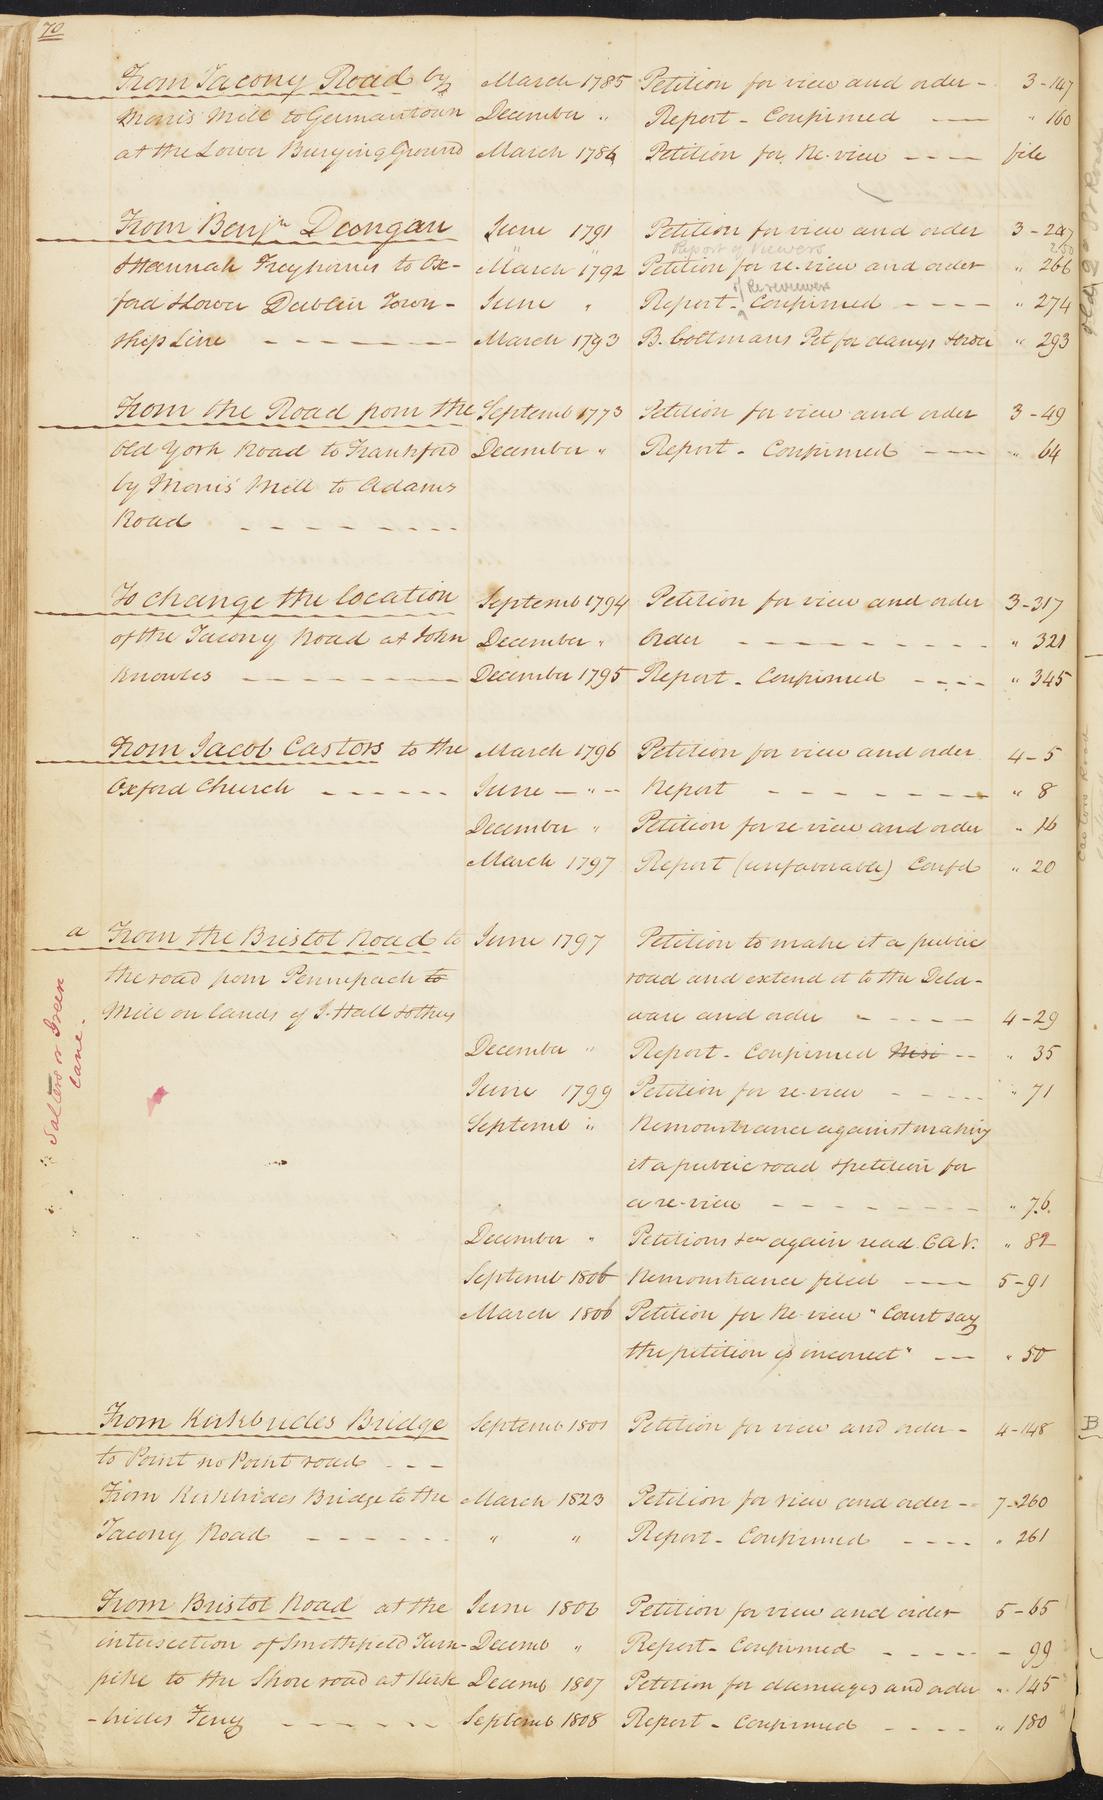 70
From Tacony Road by March 1785 Petition for view and order - 3-147
Morris Mill to Germantown December " Report - Confirmed " 160
at the Lower Burying Ground March 1786 Petition for Re-view file
From Benjn Dungan June 1791 Petition for view and order 3-247
Report of Viewers 250
& Hannah Freyhorns to Ox- March 1792 Petition for re-view and order " 266
of Reviewers
ford & Lower Dublin Town- June " Report - Confirmed " 274
ship Line March 1793 B. Coltmans Pet for damgs & order " 293
From the Road from the Septemb 1773 Petition for view and order 3-49
Old York Road to Frankford December " Report - Confirmed " 64
by Morris' Mill to Adams
Road
To change the location Septemb 1794 Petition for view and order 3-317
of the Tacony Road at John December " Order " 321
Knowles December 1795 Report - Confirmed " 345
From Jacob Castors to the March 1796 Petition for view and order 4-5
Oxford Church June " Report " 8
December " Petition for re view and order " 16
March 1797 Report (unfavorable) Confd " 20
a From the Bristol Road to June 1797 Petition to make it a public
the road from Pennepack to road and extend it to the Dela-
Mill on lands of J. Hall & others ware and order 4-29
Salters or Green
Lane.
December " Report - Confirmed Nisi " 35
June 1799 Petition for re-view " 71
Septemb " Remonstrance against making
it a public road & petition for
a re-view " 76.
December " Petitions &c again read. C.A.V. " 82
Septemb 1806 Remonstrance filed 5-91
March 1806 Petition for Re-view "Court say
the petition is incorrect" " 50
From Kirkbrides Bridge Septemb 1801 Petition for view and order - 4-148
to Point no Point road
From Kirkbrides Bridge to the March 1823 Petition for view and order - 7-260
Tacony Road " " Report - Confirmed " 261
From Bristol Road at the June 1806 Petition for view and order 5-65
intersection of Smithfield Turn- Decemb " Report - Confirmed - 99
pike to the Shore road at Kirk Decemb 1807 Petition for damages and order " 145
-brides Ferry Septemb 1808 Report - Confirmed " 180
B